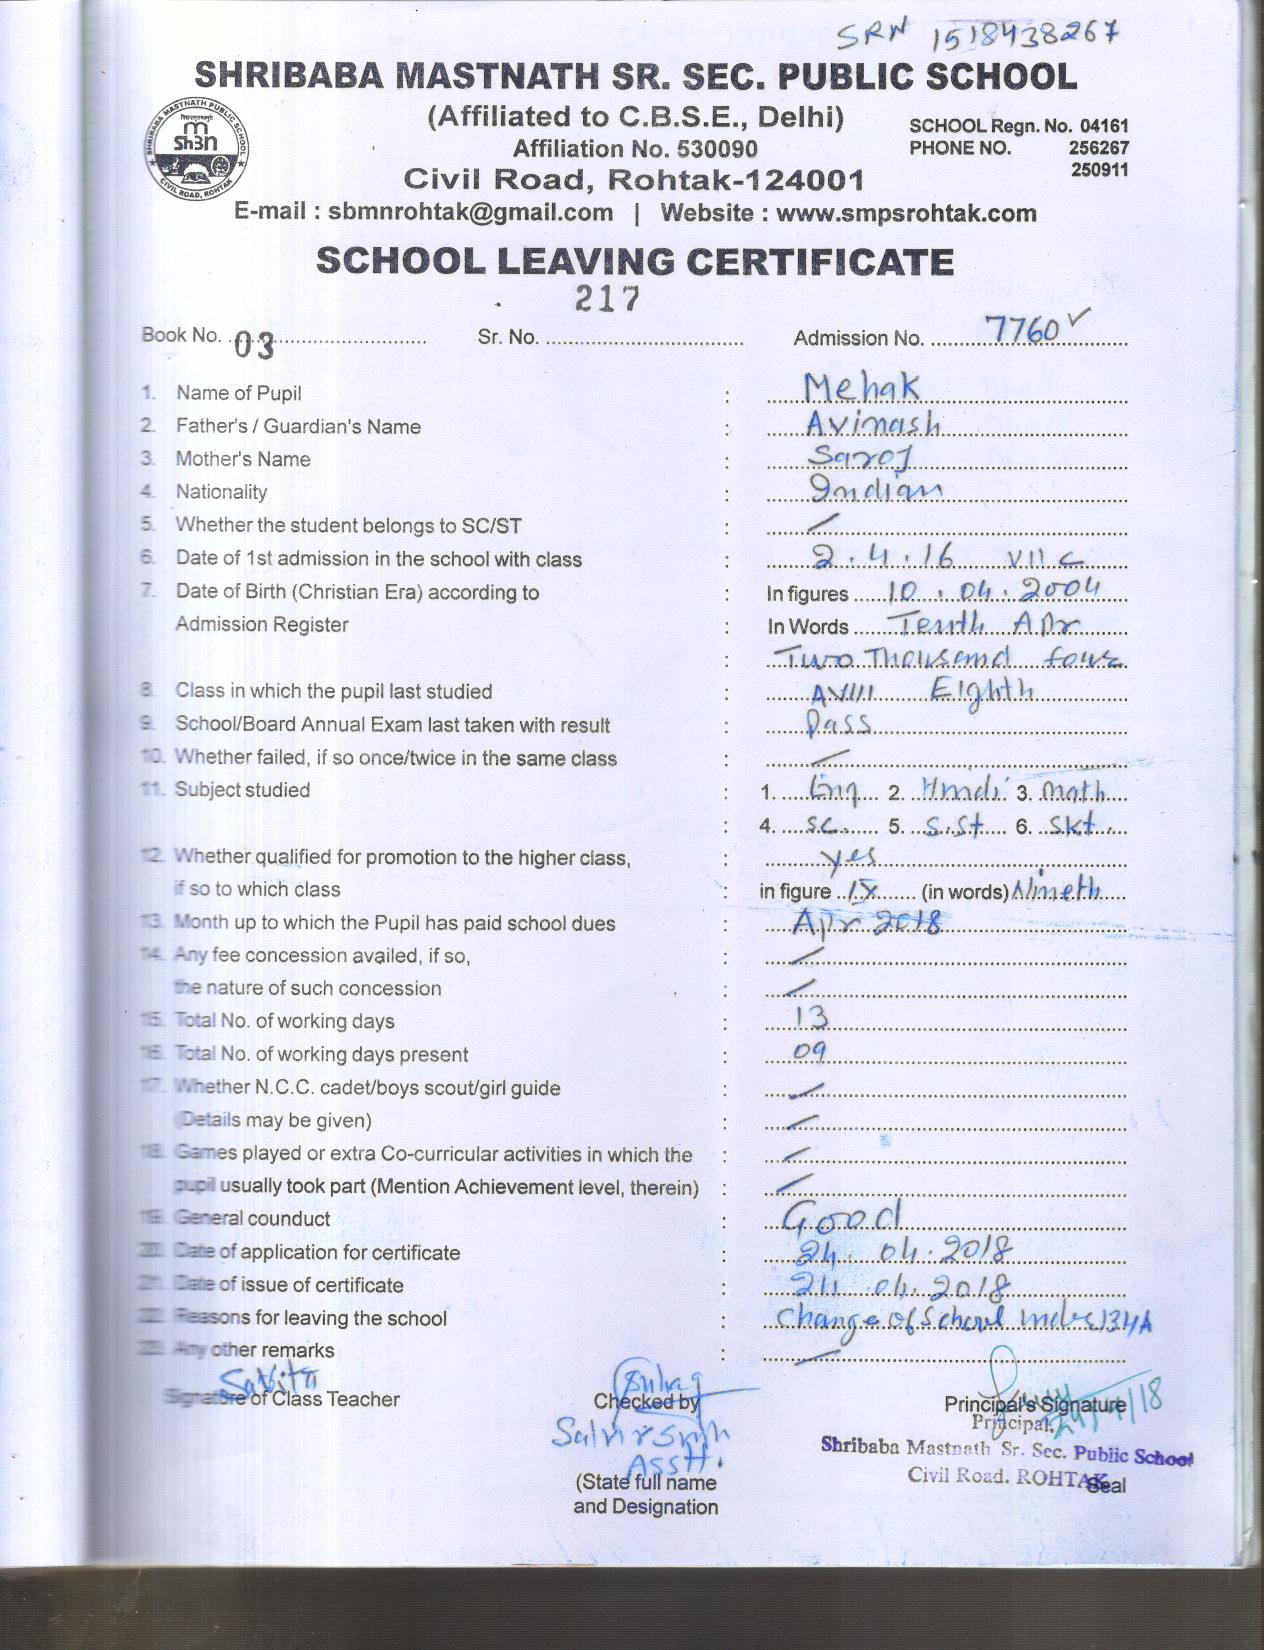 SRN 1518438267
SHRIBABA MASTNATH SR. SEC. PUBLIC SCHOOL
(Affiliated to C.B.S.E., Delhi)
SCHOOL Regn. No. 04161
Affiliation No. 530090
PHONE NO. 256267
250911
Civil Road, Rohtak-124001
SHRIBABA MASTNATH PUBLIC SCHOOL
CIVIL ROAD, ROHTAK
E-mail : sbmnrohtak@gmail.com | Website : www.smpsrohtak.com
SCHOOL LEAVING CERTIFICATE
217
Book No. 03 Sr. No. Admission No. 7760 ✓
1. Name of Pupil : Mehak
2. Father's / Guardian's Name : Avinash
3. Mother's Name : Saroj
4. Nationality : Indian
5. Whether the student belongs to SC/ST : /
6. Date of 1st admission in the school with class : 2.4.16 VII C
7. Date of Birth (Christian Era) according to : In figures 10.04.2004
Admission Register : In Words Tenth Apr
: Two Thousand four
8. Class in which the pupil last studied : VIII Eighth
9. School/Board Annual Exam last taken with result : Pass
10. Whether failed, if so once/twice in the same class : /
11. Subject studied : 1. Eng 2. Hindi 3. Math
: 4. SC. 5. S.St 6. Skt.
12. Whether qualified for promotion to the higher class, : yes
if so to which class : in figure IX (in words) Nineth
13. Month up to which the Pupil has paid school dues : Apr 2018
14. Any fee concession availed, if so, : /
the nature of such concession : /
15. Total No. of working days : 13
16. Total No. of working days present : 09
17. Whether N.C.C. cadet/boys scout/girl guide : /
(Details may be given) : /
18. Games played or extra Co-curricular activities in which the : /
pupil usually took part (Mention Achievement level, therein) : /
19. General counduct : Good
20. Date of application for certificate : 24.04.2018
21. Date of issue of certificate : 24.04.2018
22. Reasons for leaving the school : Change of School Under 134A
23. Any other remarks : /
Savita
Signature of Class Teacher Checked by Principal's Signature
24/4/18
Principal,
Asstt.
Shribaba Mastnath Sr. Sec. Public School
Civil Road. ROHTAK
Seal
(State full name
and Designation